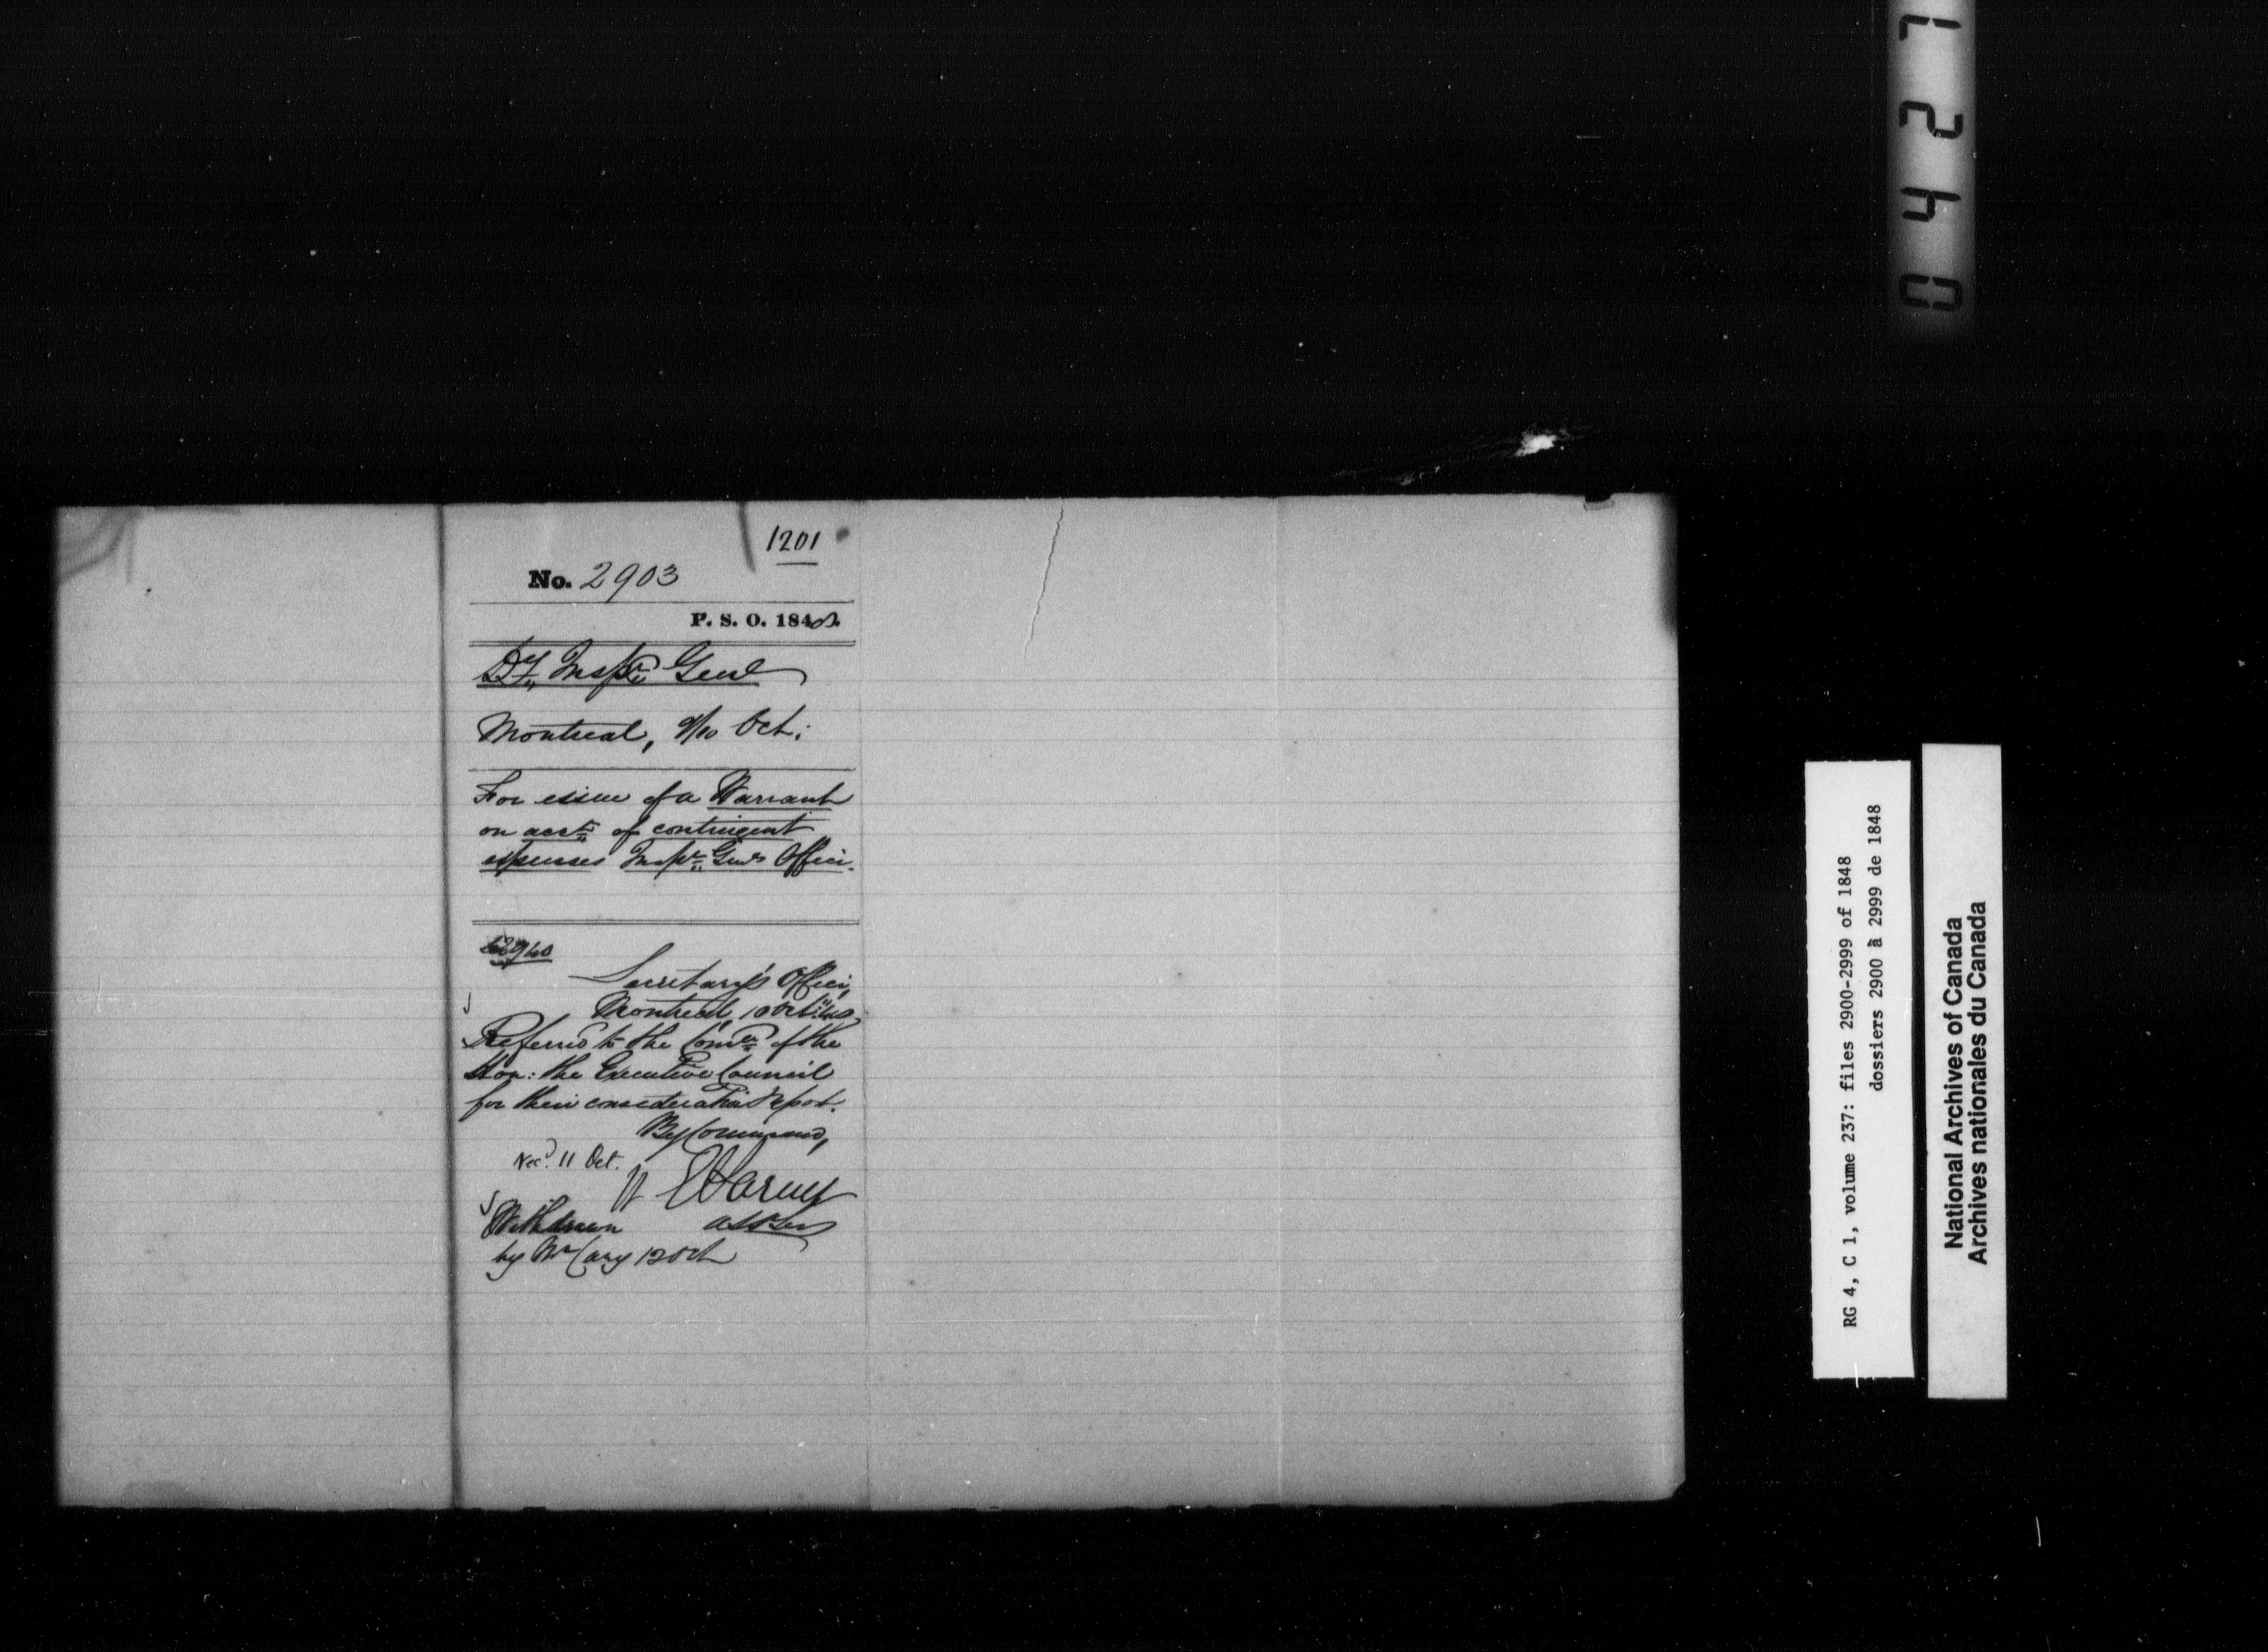 1201
No. 2903
P. S. O. 1848.
Dy. Inspr. Genl
Montreal, 9/10 Oct:
For issue of a Warrant
on acct. of contingent
expenses Inspr. Genl's Office.
Secretary's Office,
Montreal, 10 Oct: 48
Referred to the Comee. of the
Hon: the Executive Council
for their consideration & report.
By Command,
Rec'd. 11 Oct.
Withdrawn
by Mr Cary 12 Oct
0427
RG 4, C 1, volume 237: files 2900-2999 of 1848
dossiers 2900 à 2999 de 1848
National Archives of Canada
Archives nationales du Canada